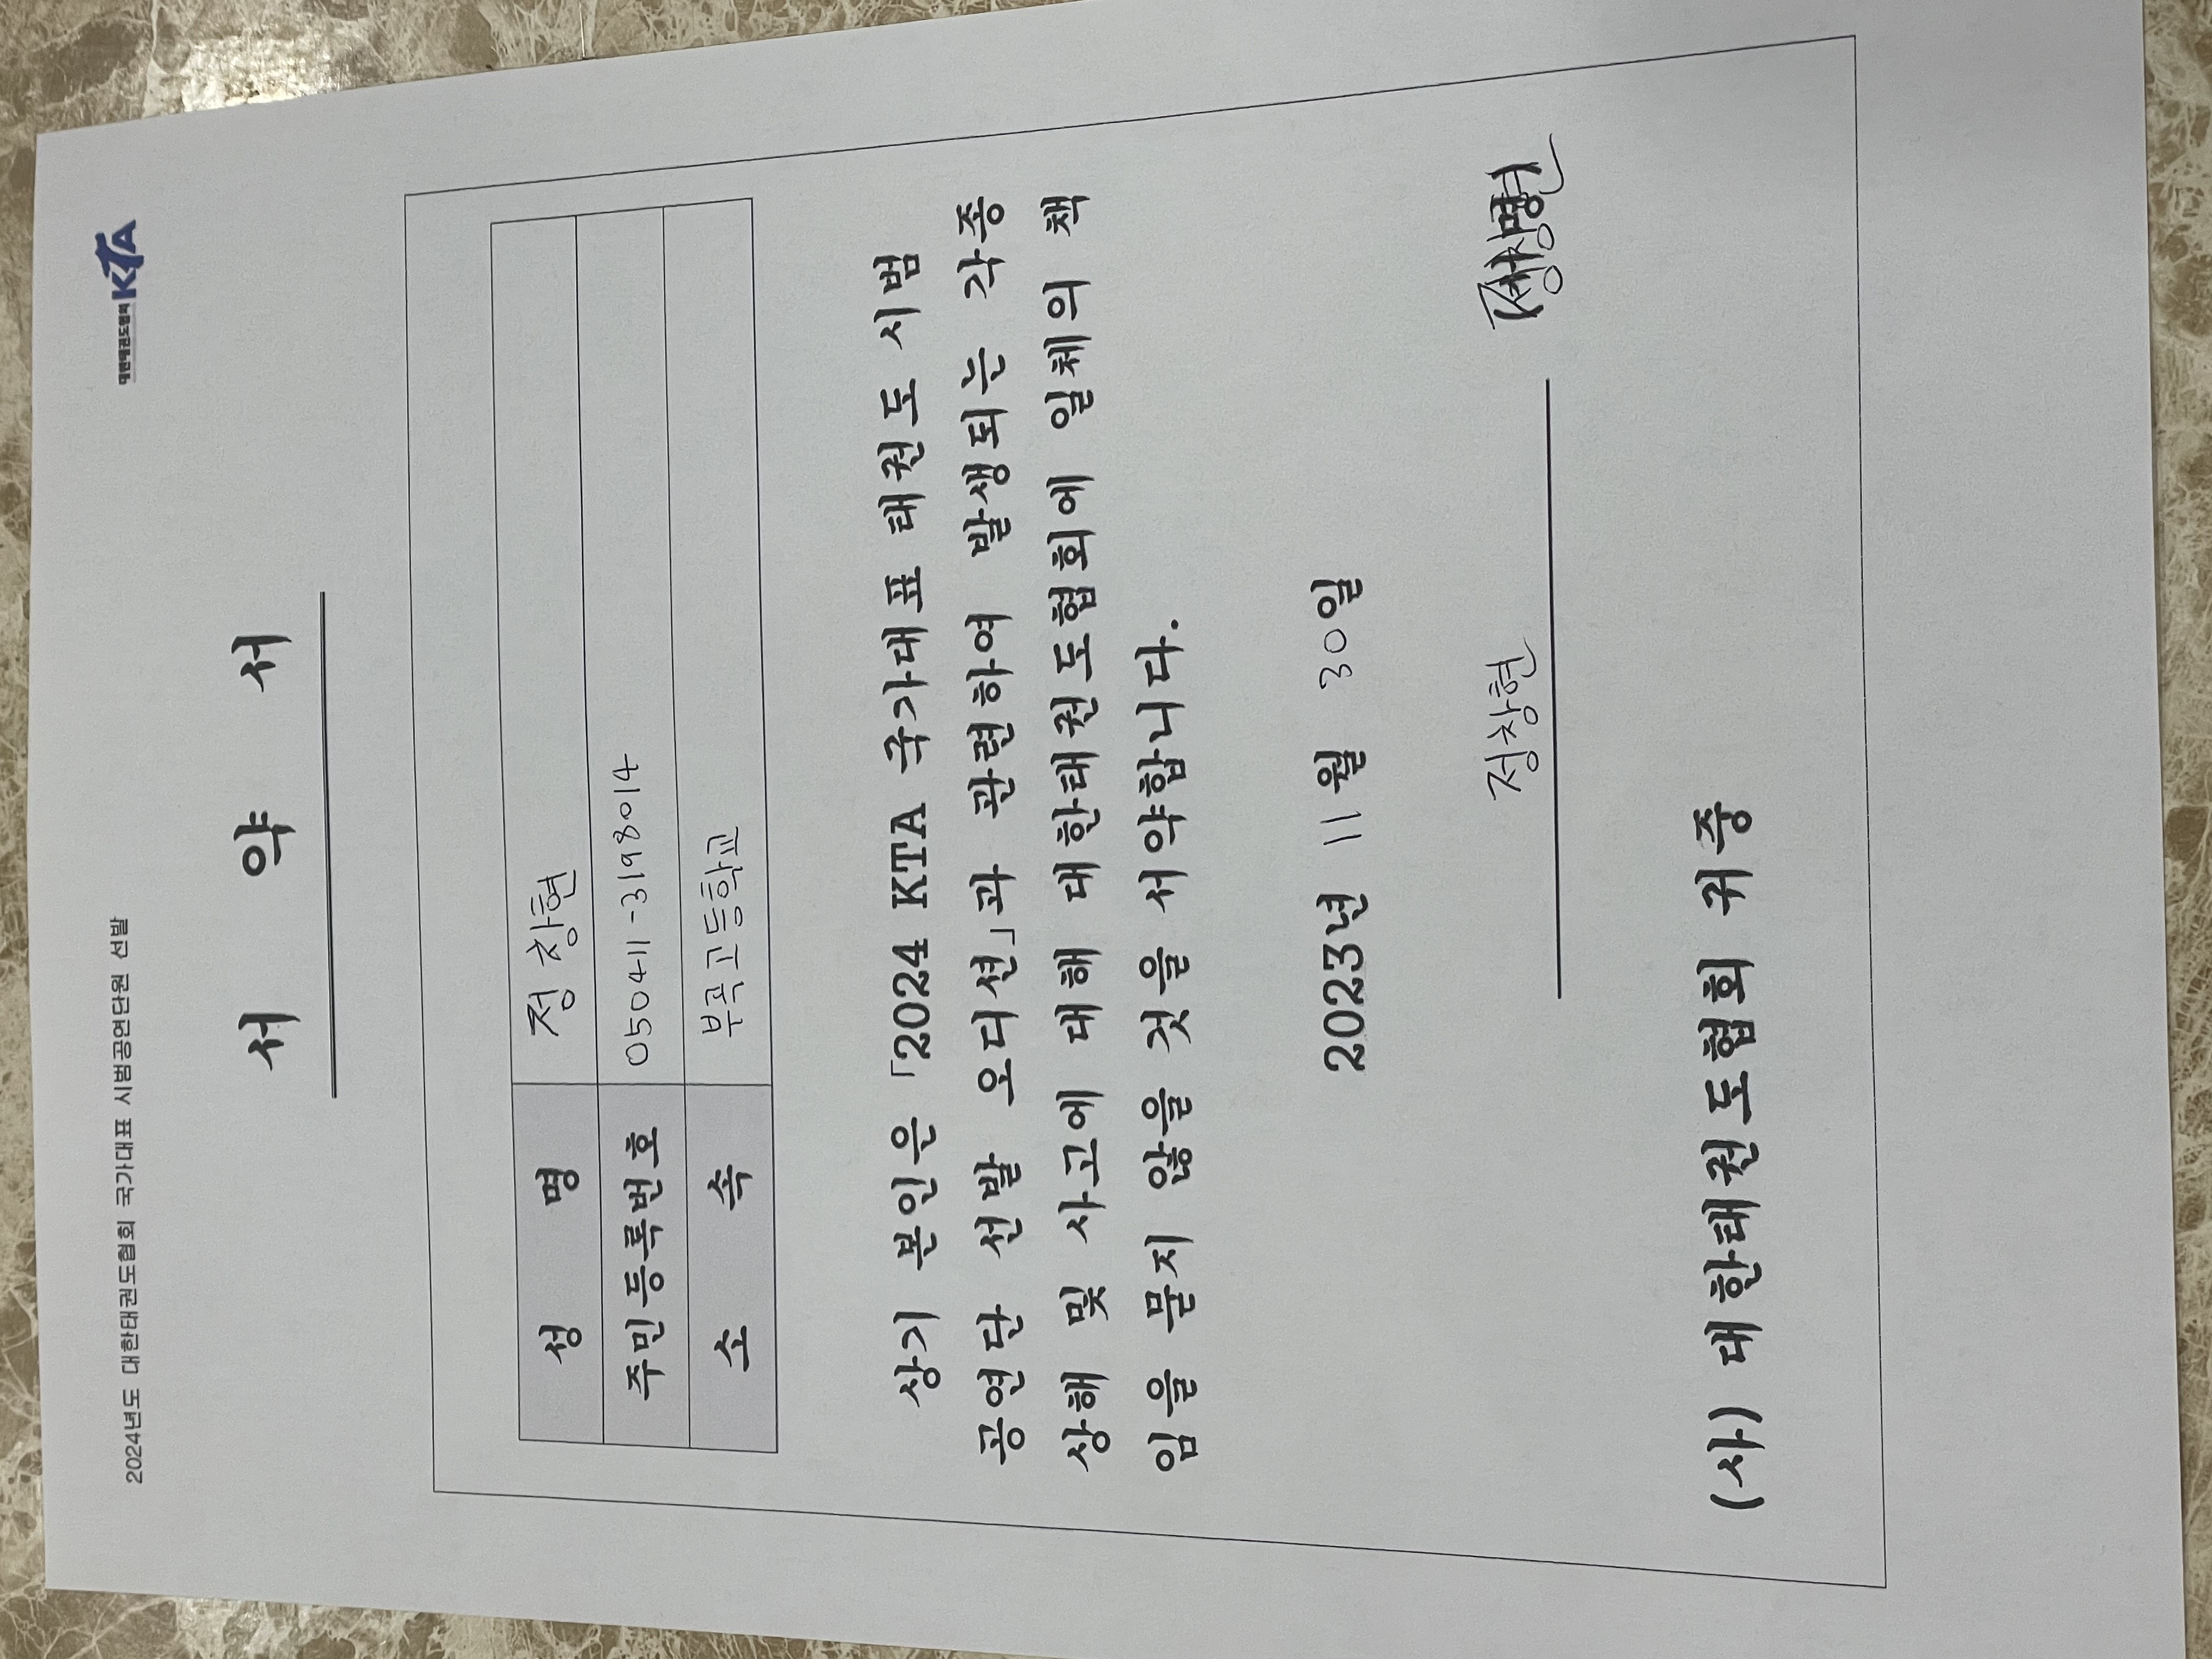 2024년도 대한태권도협회 국가대표 시범공연단원 선발
대한태권도협회 KTA
서 약 서
성 명 정창현
주민등록번호 050411-3198014
소 속 부곡고등학교
상기 본인은 「2024 KTA 국가대표 태권도 시범
공연단 선발 오디션」과 관련하여 발생되는 각종
상해 및 사고에 대해 대한태권도협회에 일체의 책
임을 묻지 않을 것을 서약합니다.
2023년 11월 30일
정창현
(사) 대한태권도협회 귀중